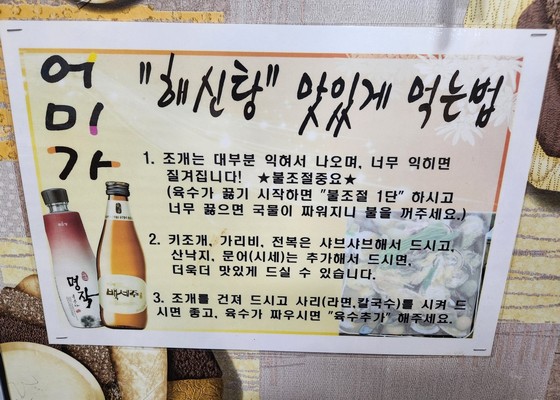 어미가
"해신탕" 맛있게 먹는법
1. 조개는 대부분 익혀서 나오며, 너무 익히면
질겨집니다! ★불조절중요★
(육수가 끓기 시작하면 "불조절 1단" 하시고
너무 끓으면 국물이 짜워지니 불을 꺼주세요.)
2. 키조개, 가리비, 전복은 샤브샤브해서 드시고,
산낙지, 문어(시세)는 추가해서 드시면,
더욱더 맛있게 드실 수 있습니다.
3. 조개를 건져 드시고 사리(라면,칼국수)를 시켜 드
시면 좋고, 육수가 짜우시면 "육수추가" 해주세요.
명작
백세주